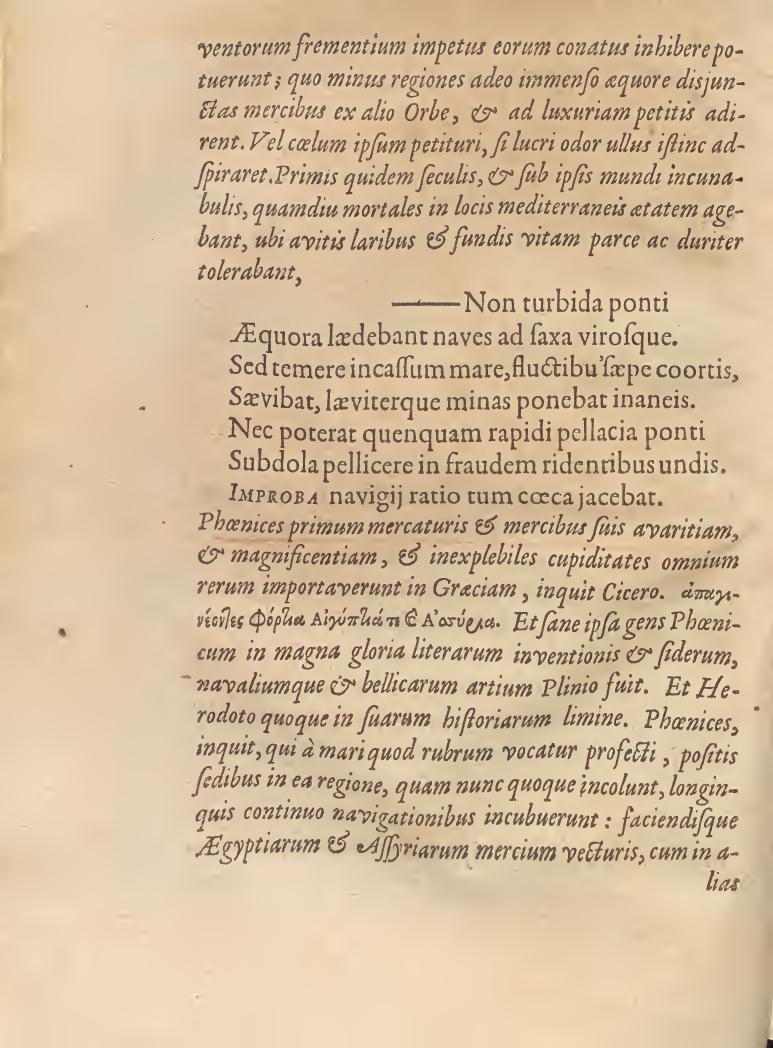 ventorum frementium impetus eorum conatus inhibere po-
tuerunt; quo minus regiones adeo immenſo æquore disjun-
ctas mercibus ex alio Orbe, & ad luxuriam petitis adi-
rent. Vel cœlum ipſum petituri, ſi lucri odor ullus iſtinc ad-
ſpiraret. Primis quidem ſeculis, & ſub ipſis mundi incuna-
bulis, quamdiu mortales in locis mediterraneis ætatem age-
bant, ubi avitis laribus & fundis vitam parce ac duriter
tolerabant,
——Non turbida ponti
Æquora lædebant naves ad ſaxa viroſque.
Sed temere incaſſum mare, fluctibu' ſæpe coortis,
Sævibat, læviterque minas ponebat inaneis.
Nec poterat quenquam rapidi pellacia ponti
Subdola pellicere in fraudem ridentibus undis.
IMPROBA navigij ratio tum cœca jacebat.
Phœnices primum mercaturis & mercibus ſuis avaritiam,
& magnificentiam, & inexplebiles cupiditates omnium
rerum importaverunt in Græciam, inquit Cicero. ἀπαγι-
νέοντες φόρτια Αἰγύπτιά τε καὶ Ἀσσύρια. Et ſane ipſa gens Phœni-
cum in magna gloria literarum inventionis & ſiderum,
navaliumque & bellicarum artium Plinio fuit. Et He-
rodoto quoque in ſuarum hiſtoriarum limine. Phœnices,
inquit, qui à mari quod rubrum vocatur profecti, poſitis
ſedibus in ea regione, quam nunc quoque incolunt, longin-
quis continuo navigationibus incubuerunt: faciendiſque
Ægyptiarum & Aſſyriarum mercium vecturis, cum in a-
lias